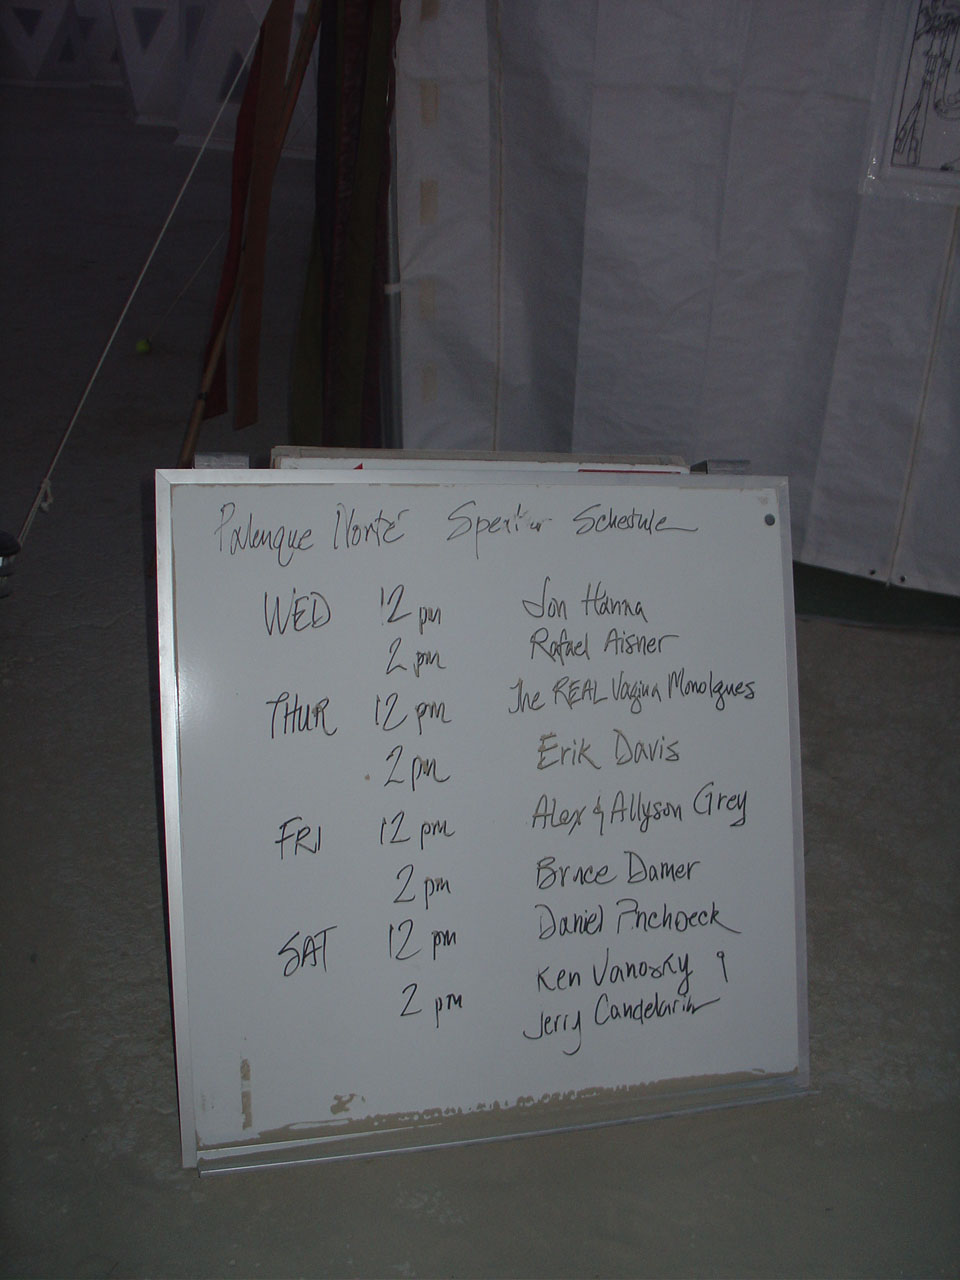 Palenque Norté Speaker Schedule
WED 12 pm Jon Hanna
2 pm Rafael Aisner
THUR 12 pm The REAL Vagina Monolgues
2 pm Erik Davis
FRI 12 pm Alex & Allyson Grey
2 pm Bruce Damer
SAT 12 pm Daniel Pinchbeck
2 pm Ken Vanosky &
Jerry Candelaria